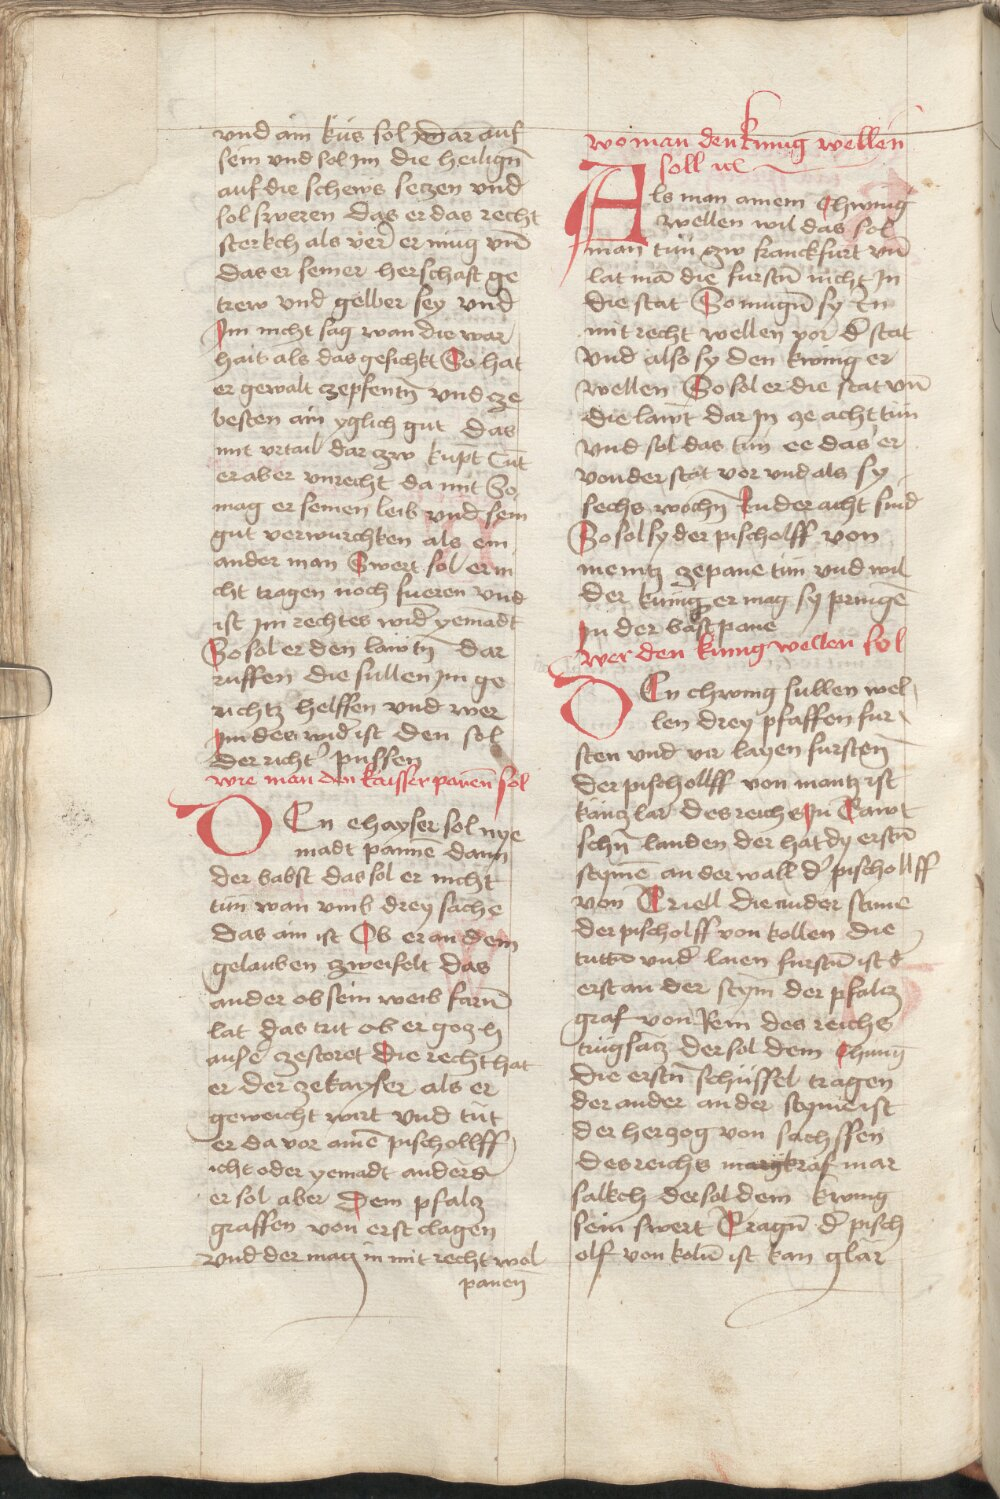 vnd ain küs sol dar auf
sein vnd sol im die heilign̄
auf die schews setzen vnd
sol sweren das er das recht
sterkch als ver er mug vn̄
das er seiner herschaft ge
trew vnd gelber sey vnd
Im nicht sag wan die war
hait als das gesichkt So hat
er gewalt zepfentn̄ vnd ze
besten ain yglich gut das
mit vrtail dar zw kupt Tut
er aber vnrecht da mit So
mag er seinen leib vnd sein
gut verwurchken als ein
ander man Swert sol er ni
cht tragen noch fueren vnd
ist im rechtes wid̕ yemādt
So sol er den lāwtn̄ dar
ruffen die sullen im ge
richtz helffen vnd wer
Im des wid̕ ist den sol
der richt̕ pussen
wie man den kaisser panen sol
DEn chayser sol nye
madt pannē dann
der babst das sol er nicht
tun wan vmb drey sache
das ain ist Ob er an dem
gelauben zweifelt das
ander ob sein weib farn̄
lat das trit ob er gozh
ause zestoret Die recht hat
er der ze kayser als er
geweicht wirt vnd tut
er da vor ainē pischollff
icht oder yemadt anders
er sol aber Dem pfalcz
graffen von erst clagen
vnd der mag in mit recht wol
panen
wo man den kunig wellen
soll etc
Als man ainem Chwnig
wellen wil das sol
man tun zw franckfurt vn̄
lat mā die furstn̄ nicht In
die stat So mugn̄ sy In
mit recht wellen vor d̕ stat
Vnd also sy den kwnig er
wellen So sol er die stat vn̄
die lawt dar In ze acht tun
Vnd sol das tun ee das er
von der stat vor vnd als sy
sechs wochn̄ In der acht sind
So sol sy der pischolff von
meintz ze pane tun vnd wil
der kunig er mag sy pringē
In der babst pane
wer den kunig wellen sol
DEn chwnig sullen wel
len drey pfaffen fur
sten vnd vir layen fursten
der pischollff von mantz ist
kantzlar des reichs In Tawt
schn̄ landen der hat dy erstn̄
stymē an der wall d̕ pischollff
von Triell die ander stime
der pischolff von kollen die
trittn̄ vnd̕ laien furstn̄ ist d̕
erst an der stym der pfalcz
graf von Rein des reichs
trugsatz der sol dem Chunig
die erstn̄ schüssel tragen
der ander an der stymē ist
der herzog von sachssen
des reichs margkraf mar
salkch der sol dem kwnig
sein swert Tragn̄ d̕ pisch
olf von koln̄ ist kan glar